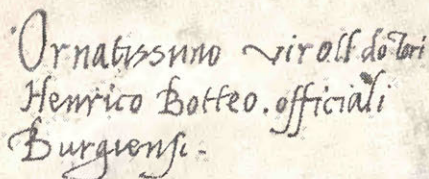 Ornatissimo viro ll doctori
Henrico Botteo. officiali
Burgiensi.